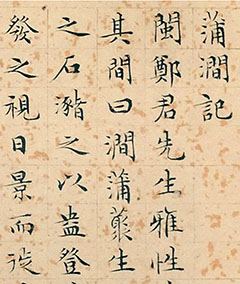 蒲澗記
閩鄭君先生雅性
其間曰澗蒲藂生
之石瀦之以盎登
發之視日景而徙